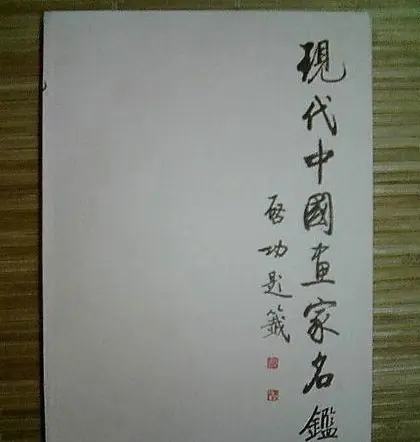 現代中國画家名鑑
啓功題籤